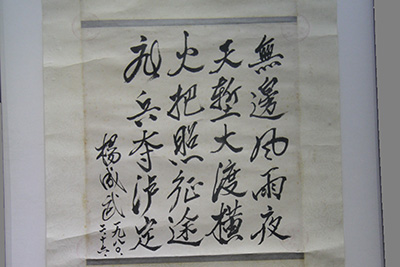 無邊風雨夜
天塹大渡橫
火把照征途
飛兵奪泸定
楊成武
一九八〇、
六、十六、